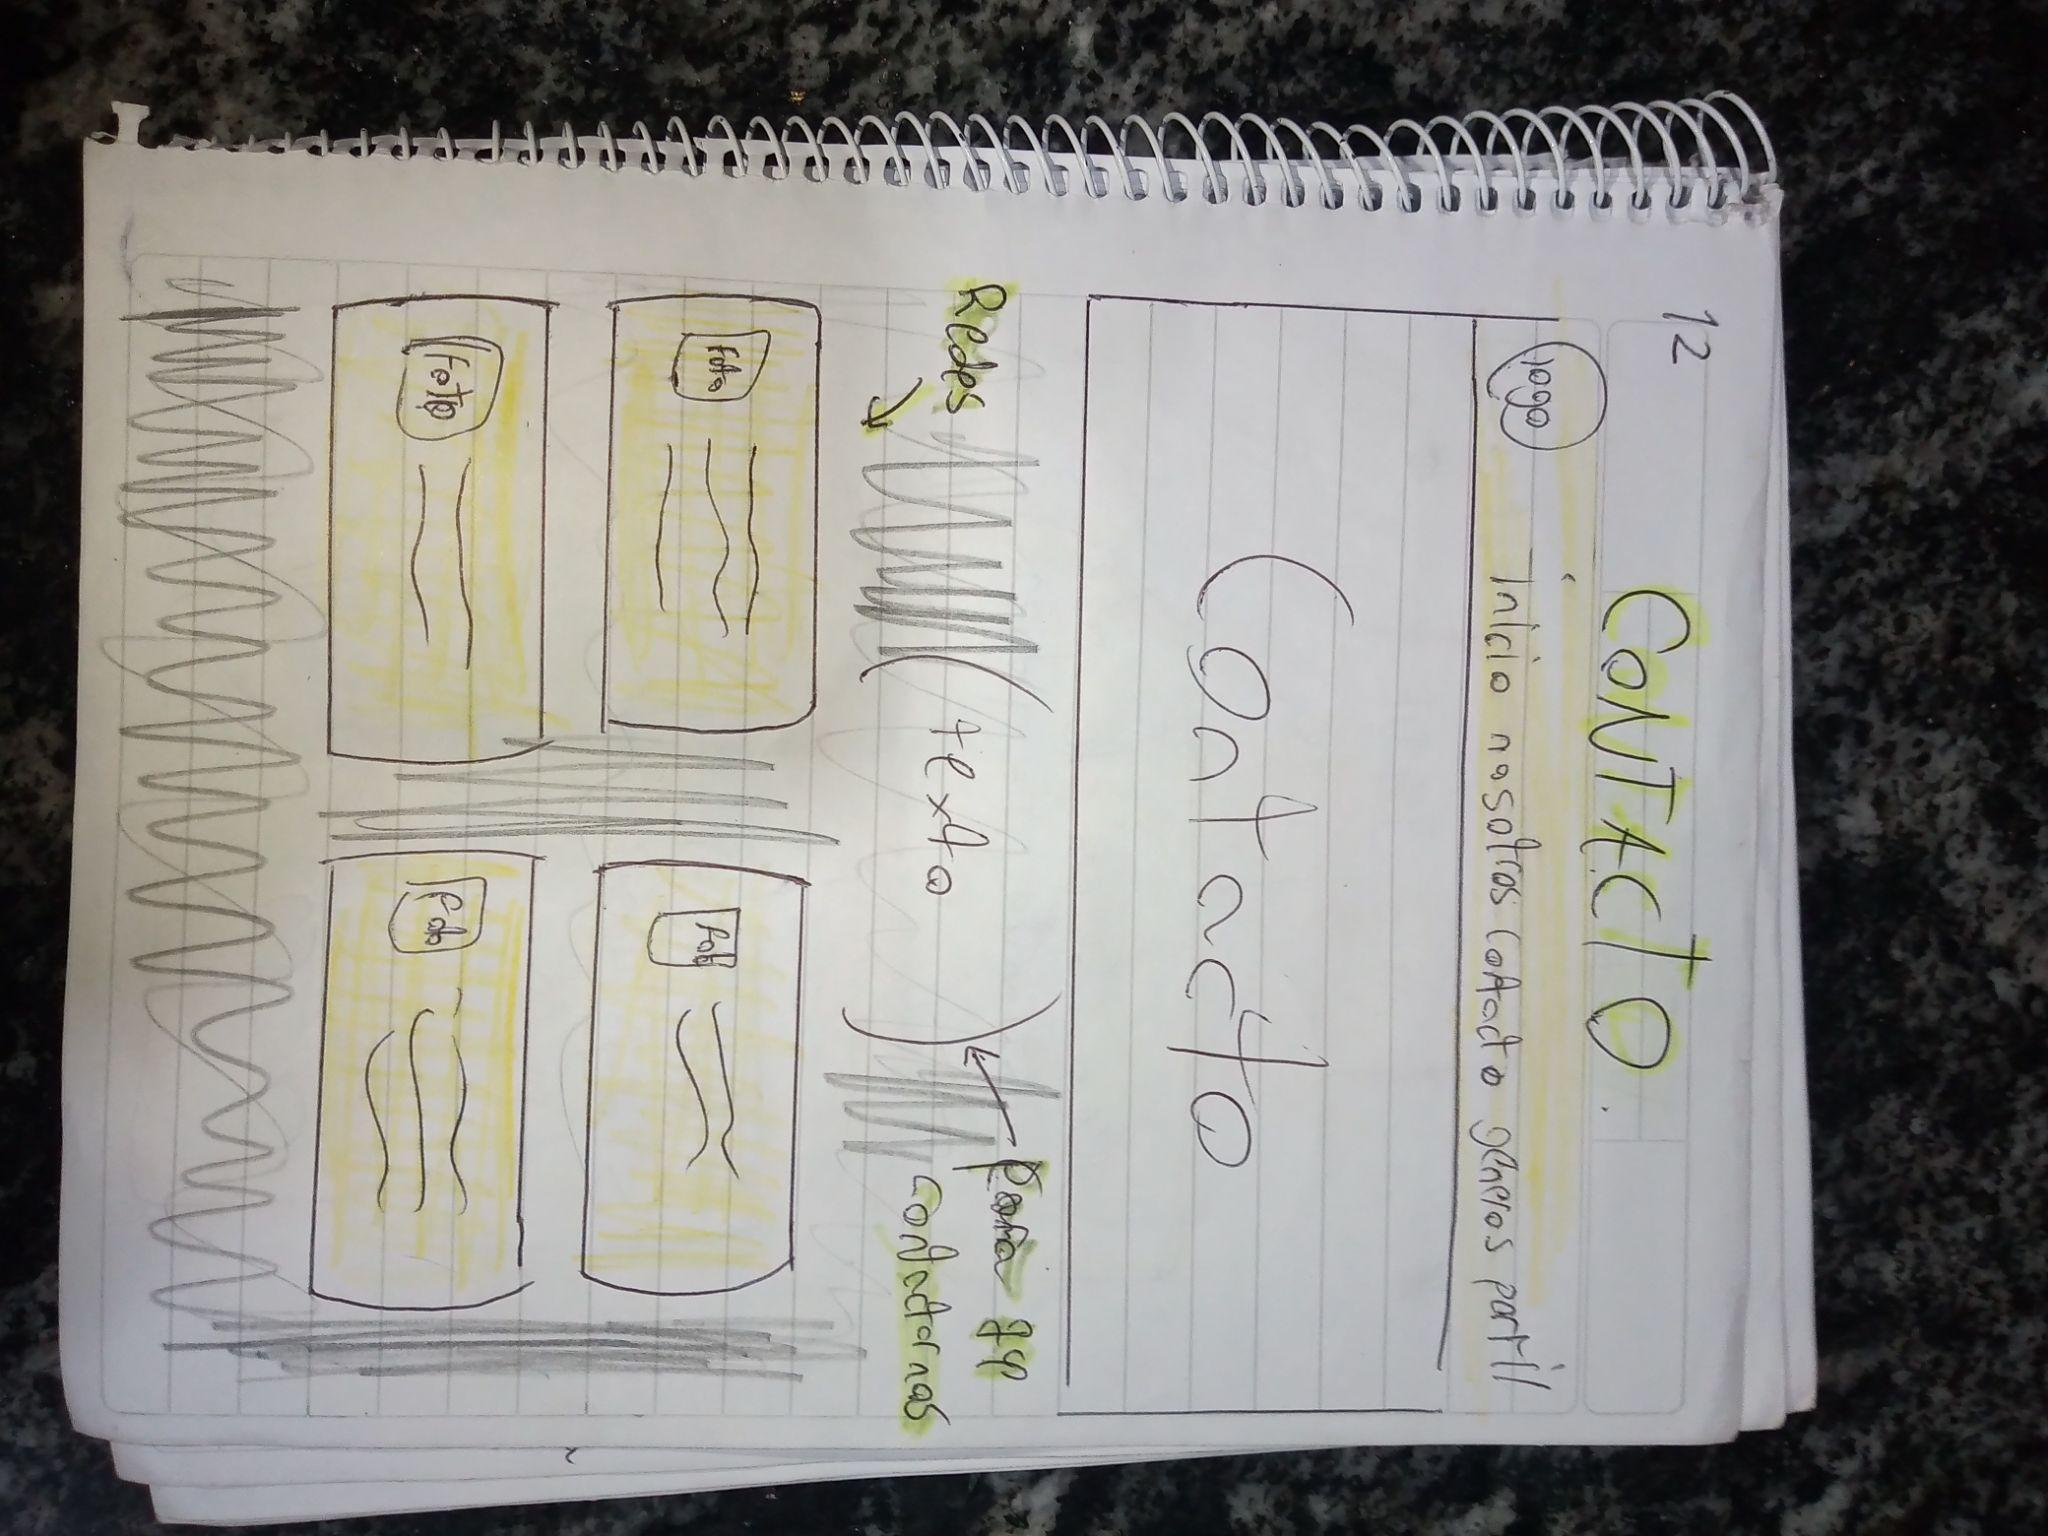 12
CONTACTO.
logo
inicio nosotros Cotacto generos partil
Contacto
Redes
(texto)
Para qn
contactarnos
Foto
Foto
Foto